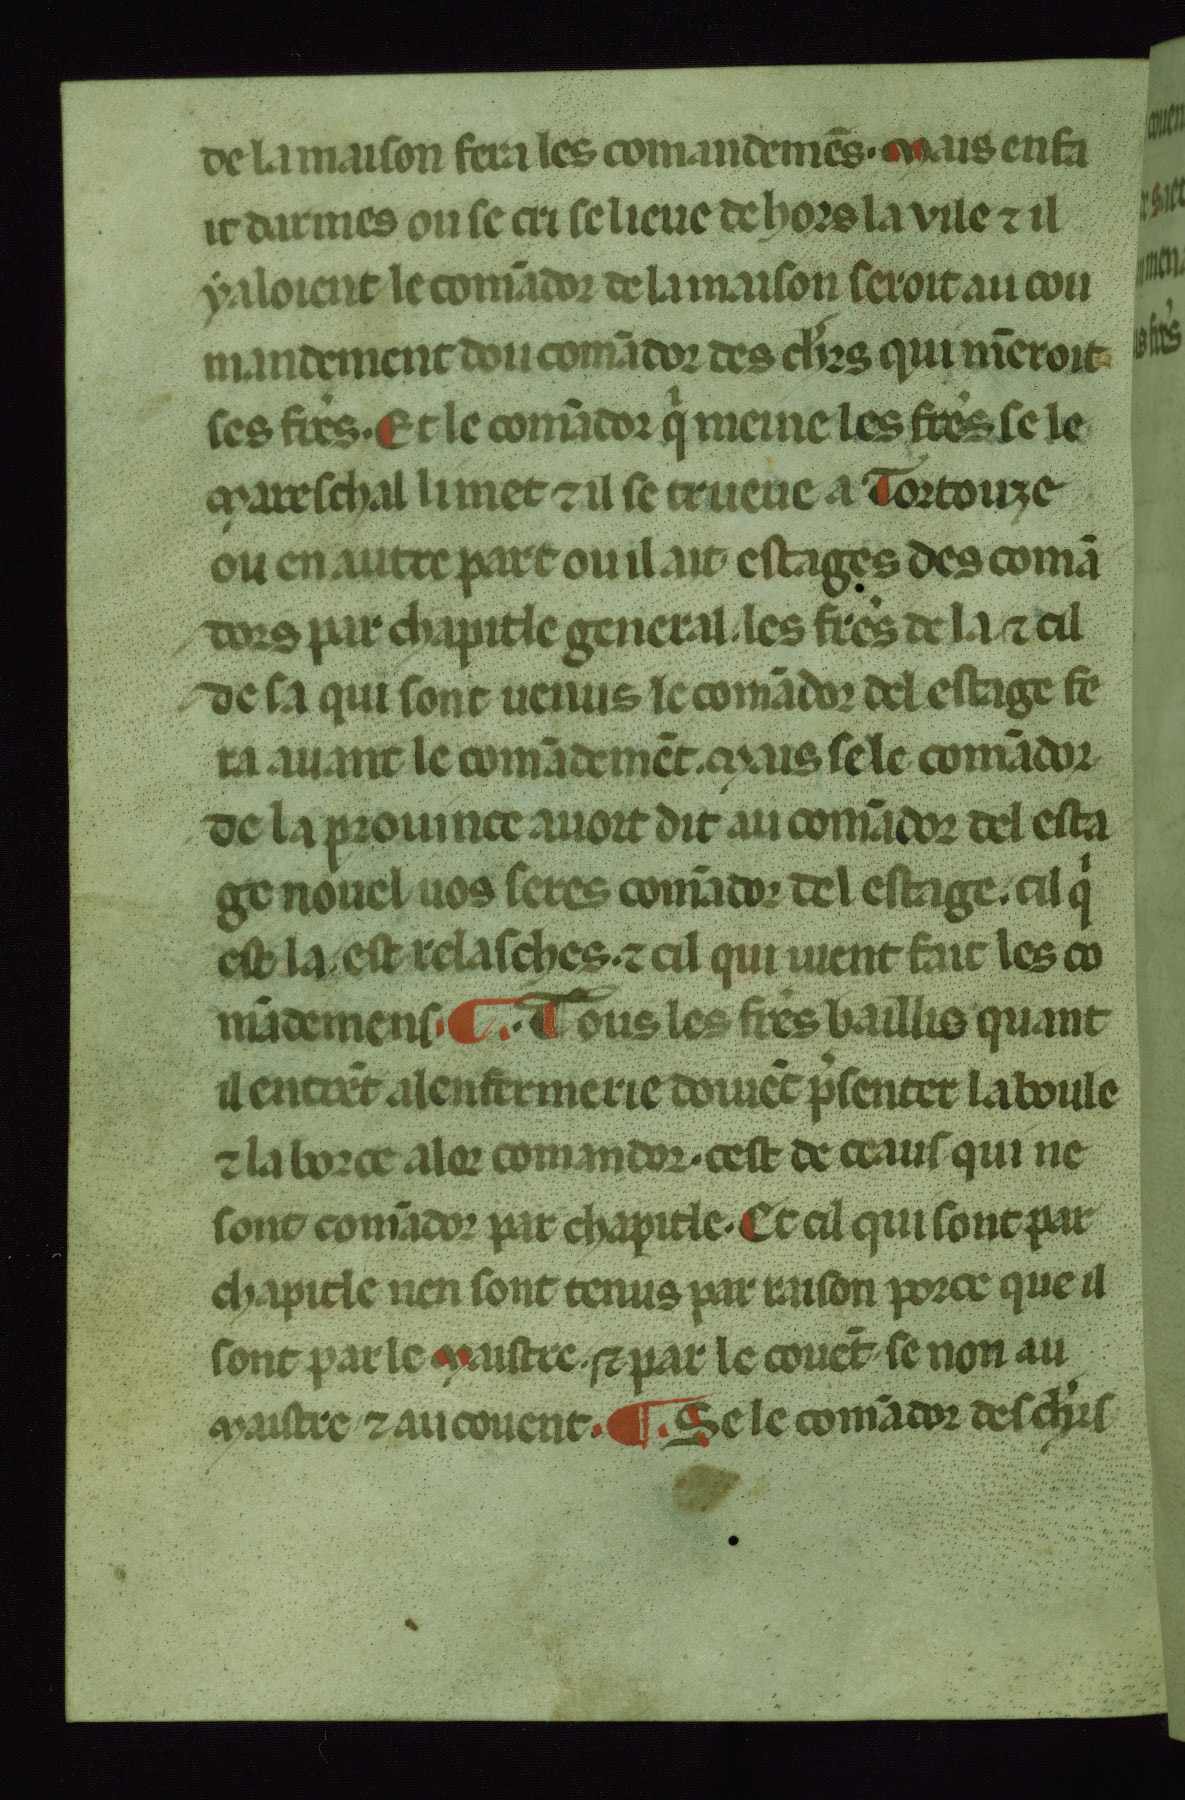 de la maison fera les comandemēs. Mais en fa
it darmes ou se cri se lieue de hors la vile ⁊ il
y aloient le comādor de la maison seroit au cou
mandement dou comādor des chꝰrs qui mēeroit
ses frēs. Et le comādor qͥ meine les frēs se le
Mareschal li met ⁊ il se trueue a Tortouze
ou en autre part ou il ait estages des comā
dors par chapitle general. les frēs de la ⁊ cil
de sa qui sont uenus le comādor del estage fe
ra auant le comādemēt. Mais se le comādor
de la prouince auoit dit au comādor del esta
ge nouel uos seres comādor del estage. cil qͥ
est la. est relasches. ⁊ cil qui uient fait les co
mādemens. ¶. Tous les frēs baillis quant
il entrēt al enfermerie doiuēt p̄senter la boule
⁊ la borce a lor comandor. cest de ceaus qui ne
sont comādor par chapitle. Et cil qui sont par
chapitle nen sont tenus par raison por ce que il
sont par le Maistre. ⁊ par le couēt se non au
Maistre ⁊ au couent. ¶. Se le comādor des chꝰrs
couen